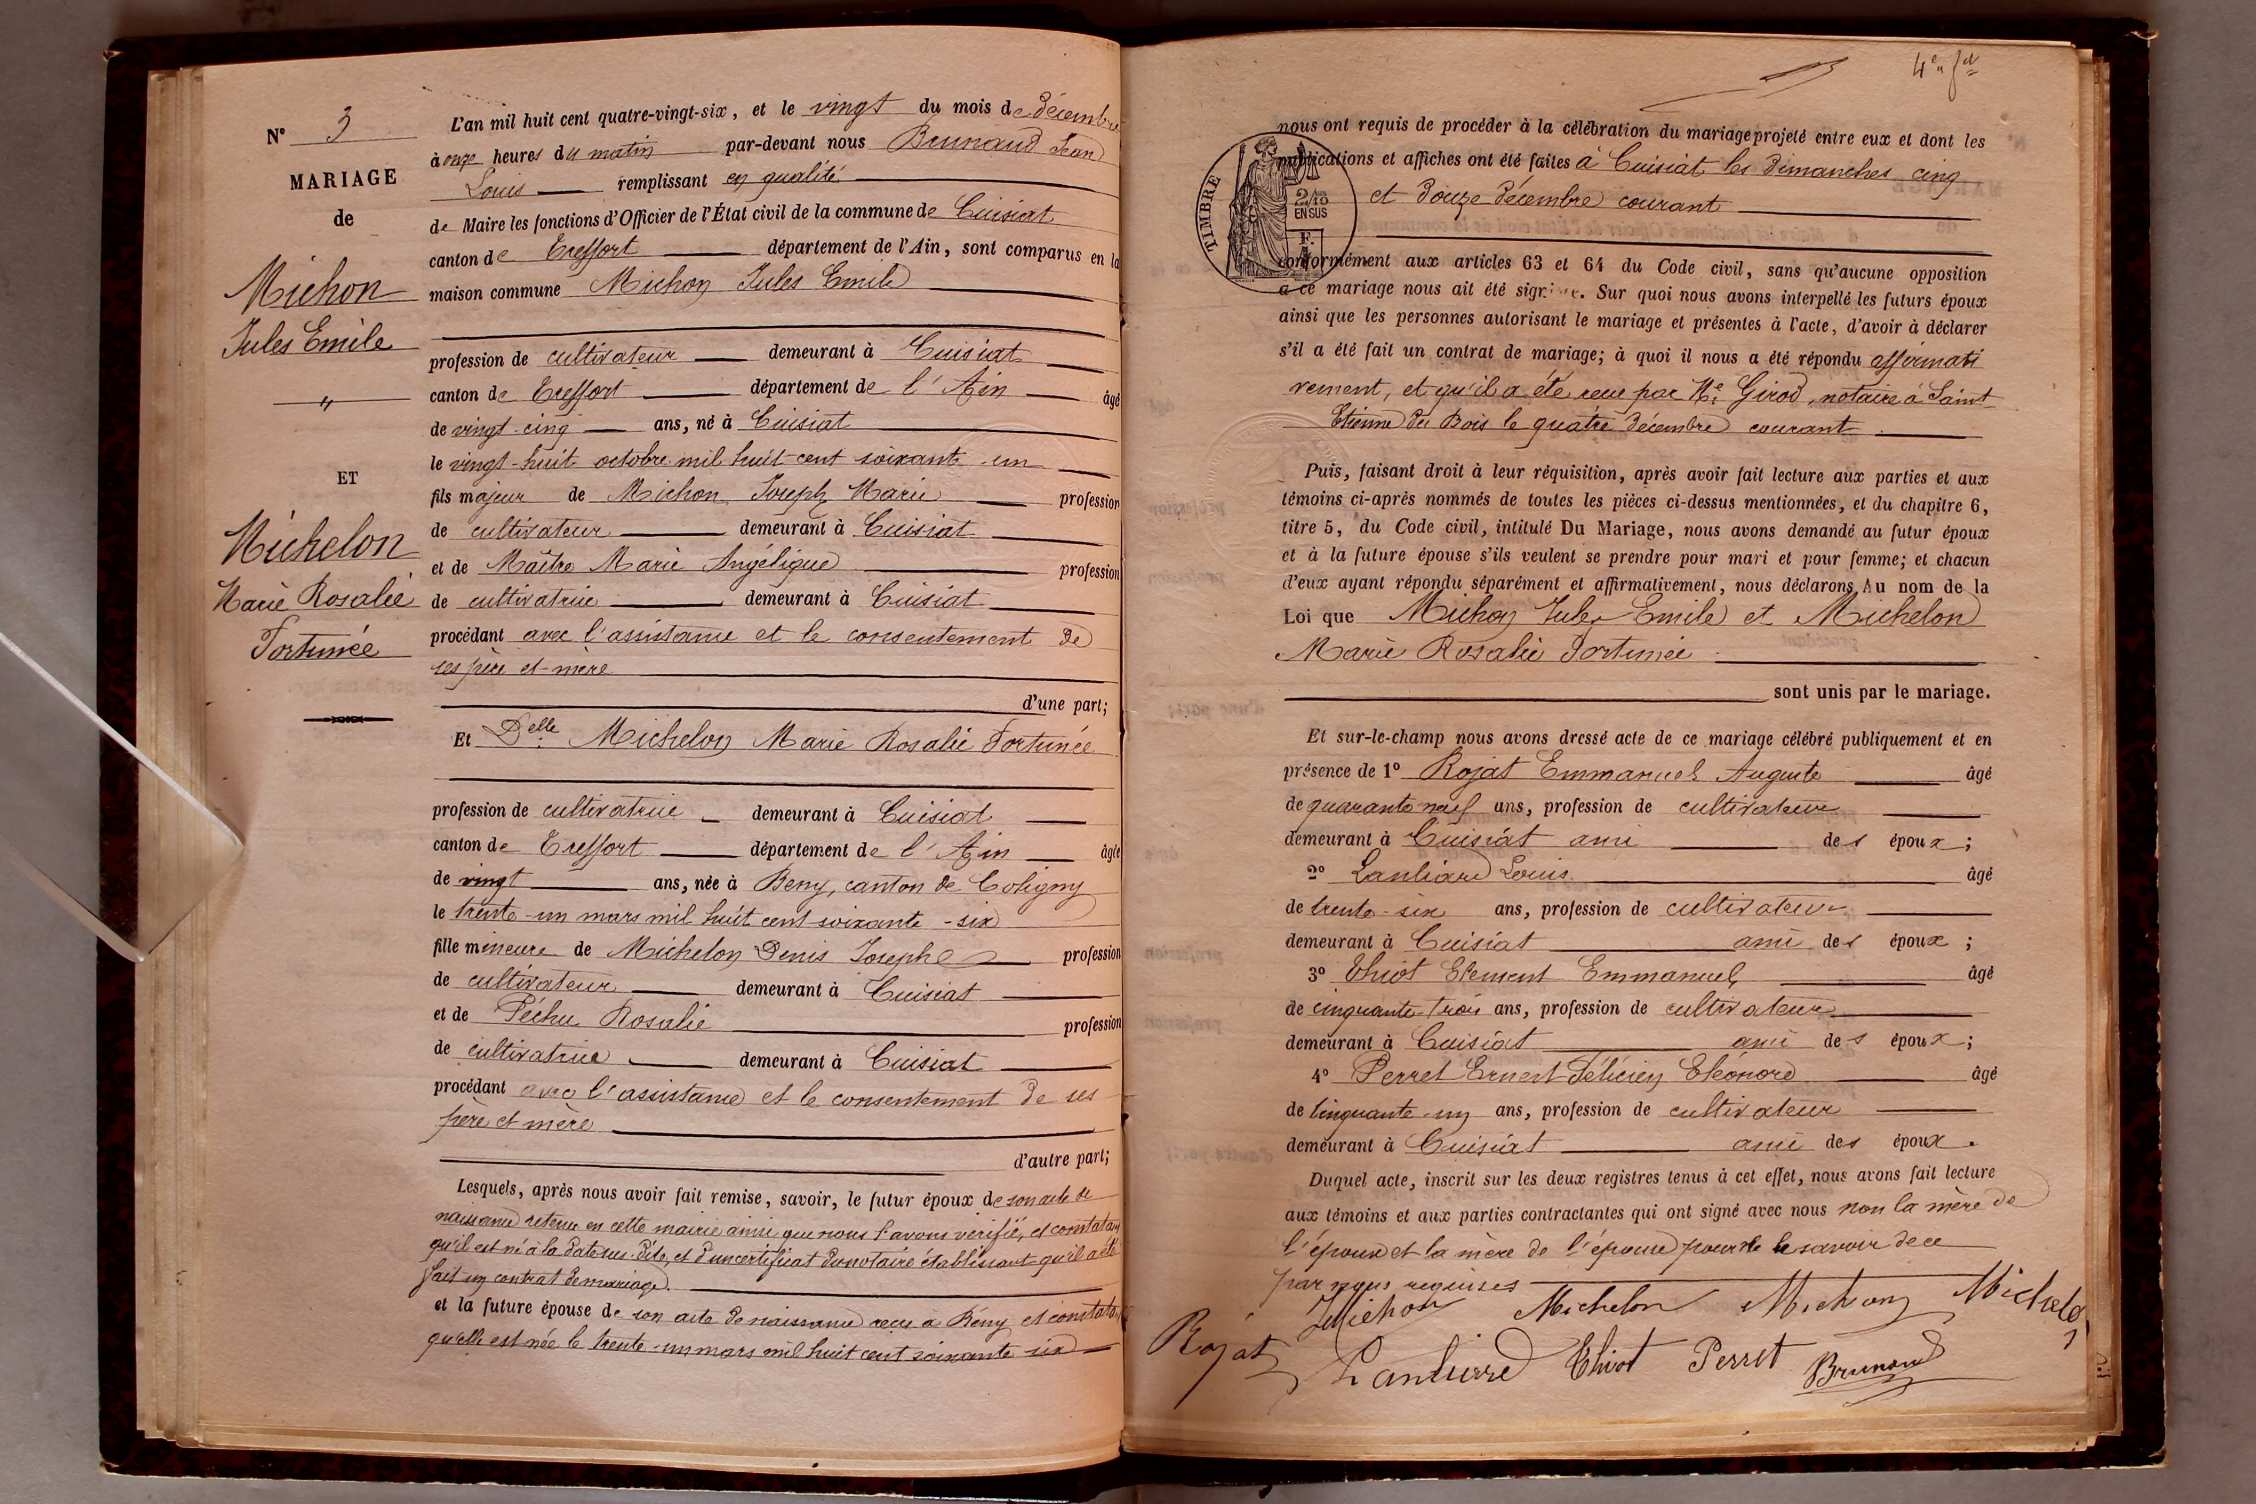 N° 3
MARIAGE
de
Michon
Jules Emile
"
ET
Michelon
Marie Rosalie
Fortunée
L'an mil huit cent quatre-vingt-six, et le vingt du mois de Décembre
à onze heures du matin par-devant nous Brunaud Jean
Louis remplissant en qualité
de Maire les fonctions d'Officier de l'État civil de la commune de Cuisiat
canton de Treffort département de l'Ain, sont comparus en la
maison commune Michon Jules Emile
profession de cultivateur demeurant à Cuisiat
canton de Treffort département de l'Ain âgé
de vingt-cinq ans, né à Cuisiat
le vingt-huit octobre mil huit cent soixante-un
fils majeur de Michon Joseph Marie profession
de cultivateur demeurant à Cuisiat
et de Maître Marie Angélique profession
de cultivatrice demeurant à Cuisiat
procédant avec l'assistance et le consentement de
ses père et mère
d'une part;
Et Delle Michelon Marie Rosalie Fortunée
profession de cultivatrice demeurant à Cuisiat
canton de Treffort département de l'Ain âgée
de vingt ans, née à Bény, canton de Coligny
le trente-un mars mil huit cent soixante-six
fille mineure de Michelon Denis Joseph profession
de cultivateur demeurant à Cuisiat
et de Péchu Rosalie profession
de cultivatrice demeurant à Cuisiat
procédant avec l'assistance et le consentement de ses
père et mère
d'autre part;
Lesquels, après nous avoir fait remise, savoir, le futur époux de son acte de
naissance retenu en cette mairie ainsi que nous l'avons vérifié, et constatant
qu'il est né à la date sus-dite, et d'un certificat du notaire établissant qu'il a été
fait un contrat de mariage.
et la future épouse de son acte de naissance reçu à Bény et constatant
qu'elle est née le trente-un mars mil huit cent soixante-six
4e
TIMBRE
2/10
EN SUS
F.
nous ont requis de procéder à la célébration du mariage projeté entre eux et dont les
publications et affiches ont été faites à Cuisiat les dimanches cinq
et douze décembre courant
conformément aux articles 63 et 64 du Code civil, sans qu'aucune opposition
à ce mariage nous ait été signifiée. Sur quoi nous avons interpellé les futurs époux
ainsi que les personnes autorisant le mariage et présentes à l'acte, d'avoir à déclarer
s'il a été fait un contrat de mariage; à quoi il nous a été répondu affirmati
vement, et qu'il a été reçu par Me Girod, notaire à Saint
Etienne du Bois le quatre décembre courant.
Puis, faisant droit à leur réquisition, après avoir fait lecture aux parties et aux
témoins ci-après nommés de toutes les pièces ci-dessus mentionnées, et du chapitre 6,
titre 5, du Code civil, intitulé Du Mariage, nous avons demandé au futur époux
et à la future épouse s'ils veulent se prendre pour mari et pour femme; et chacun
d'eux ayant répondu séparément et affirmativement, nous déclarons Au nom de la
Loi que Michon Jules Emile et Michelon
Marie Rosalie Fortunée
sont unis par le mariage.
Et sur-le-champ nous avons dressé acte de ce mariage célébré publiquement et en
présence de 1° Rojat Emmanuel Auguste âgé
de quarante neuf ans, profession de cultivateur
demeurant à Cuisiat ami des époux;
2° Lanliard Louis âgé
de trente-six ans, profession de cultivateur
demeurant à Cuisiat ami des époux;
3° Thiot Clément Emmanuel âgé
de cinquante-trois ans, profession de cultivateur
demeurant à Cuisiat ami des époux;
4° Perret Ernest Félicien Eléonore âgé
de cinquante-un ans, profession de cultivateur
demeurant à Cuisiat ami des époux.
Duquel acte, inscrit sur les deux registres tenus à cet effet, nous avons fait lecture
aux témoins et aux parties contractantes qui ont signé avec nous non la mère de
l'époux et la mère de l'épouse pour ne le savoir de ce
par nous requises
JMichon Michelon Michon Michelon
Rojat Lanliard Thiot Perret Brunaud